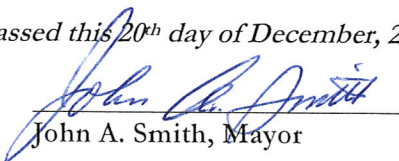 assed this 20th day of December, 2
John A. Smith
John A. Smith, Mayor